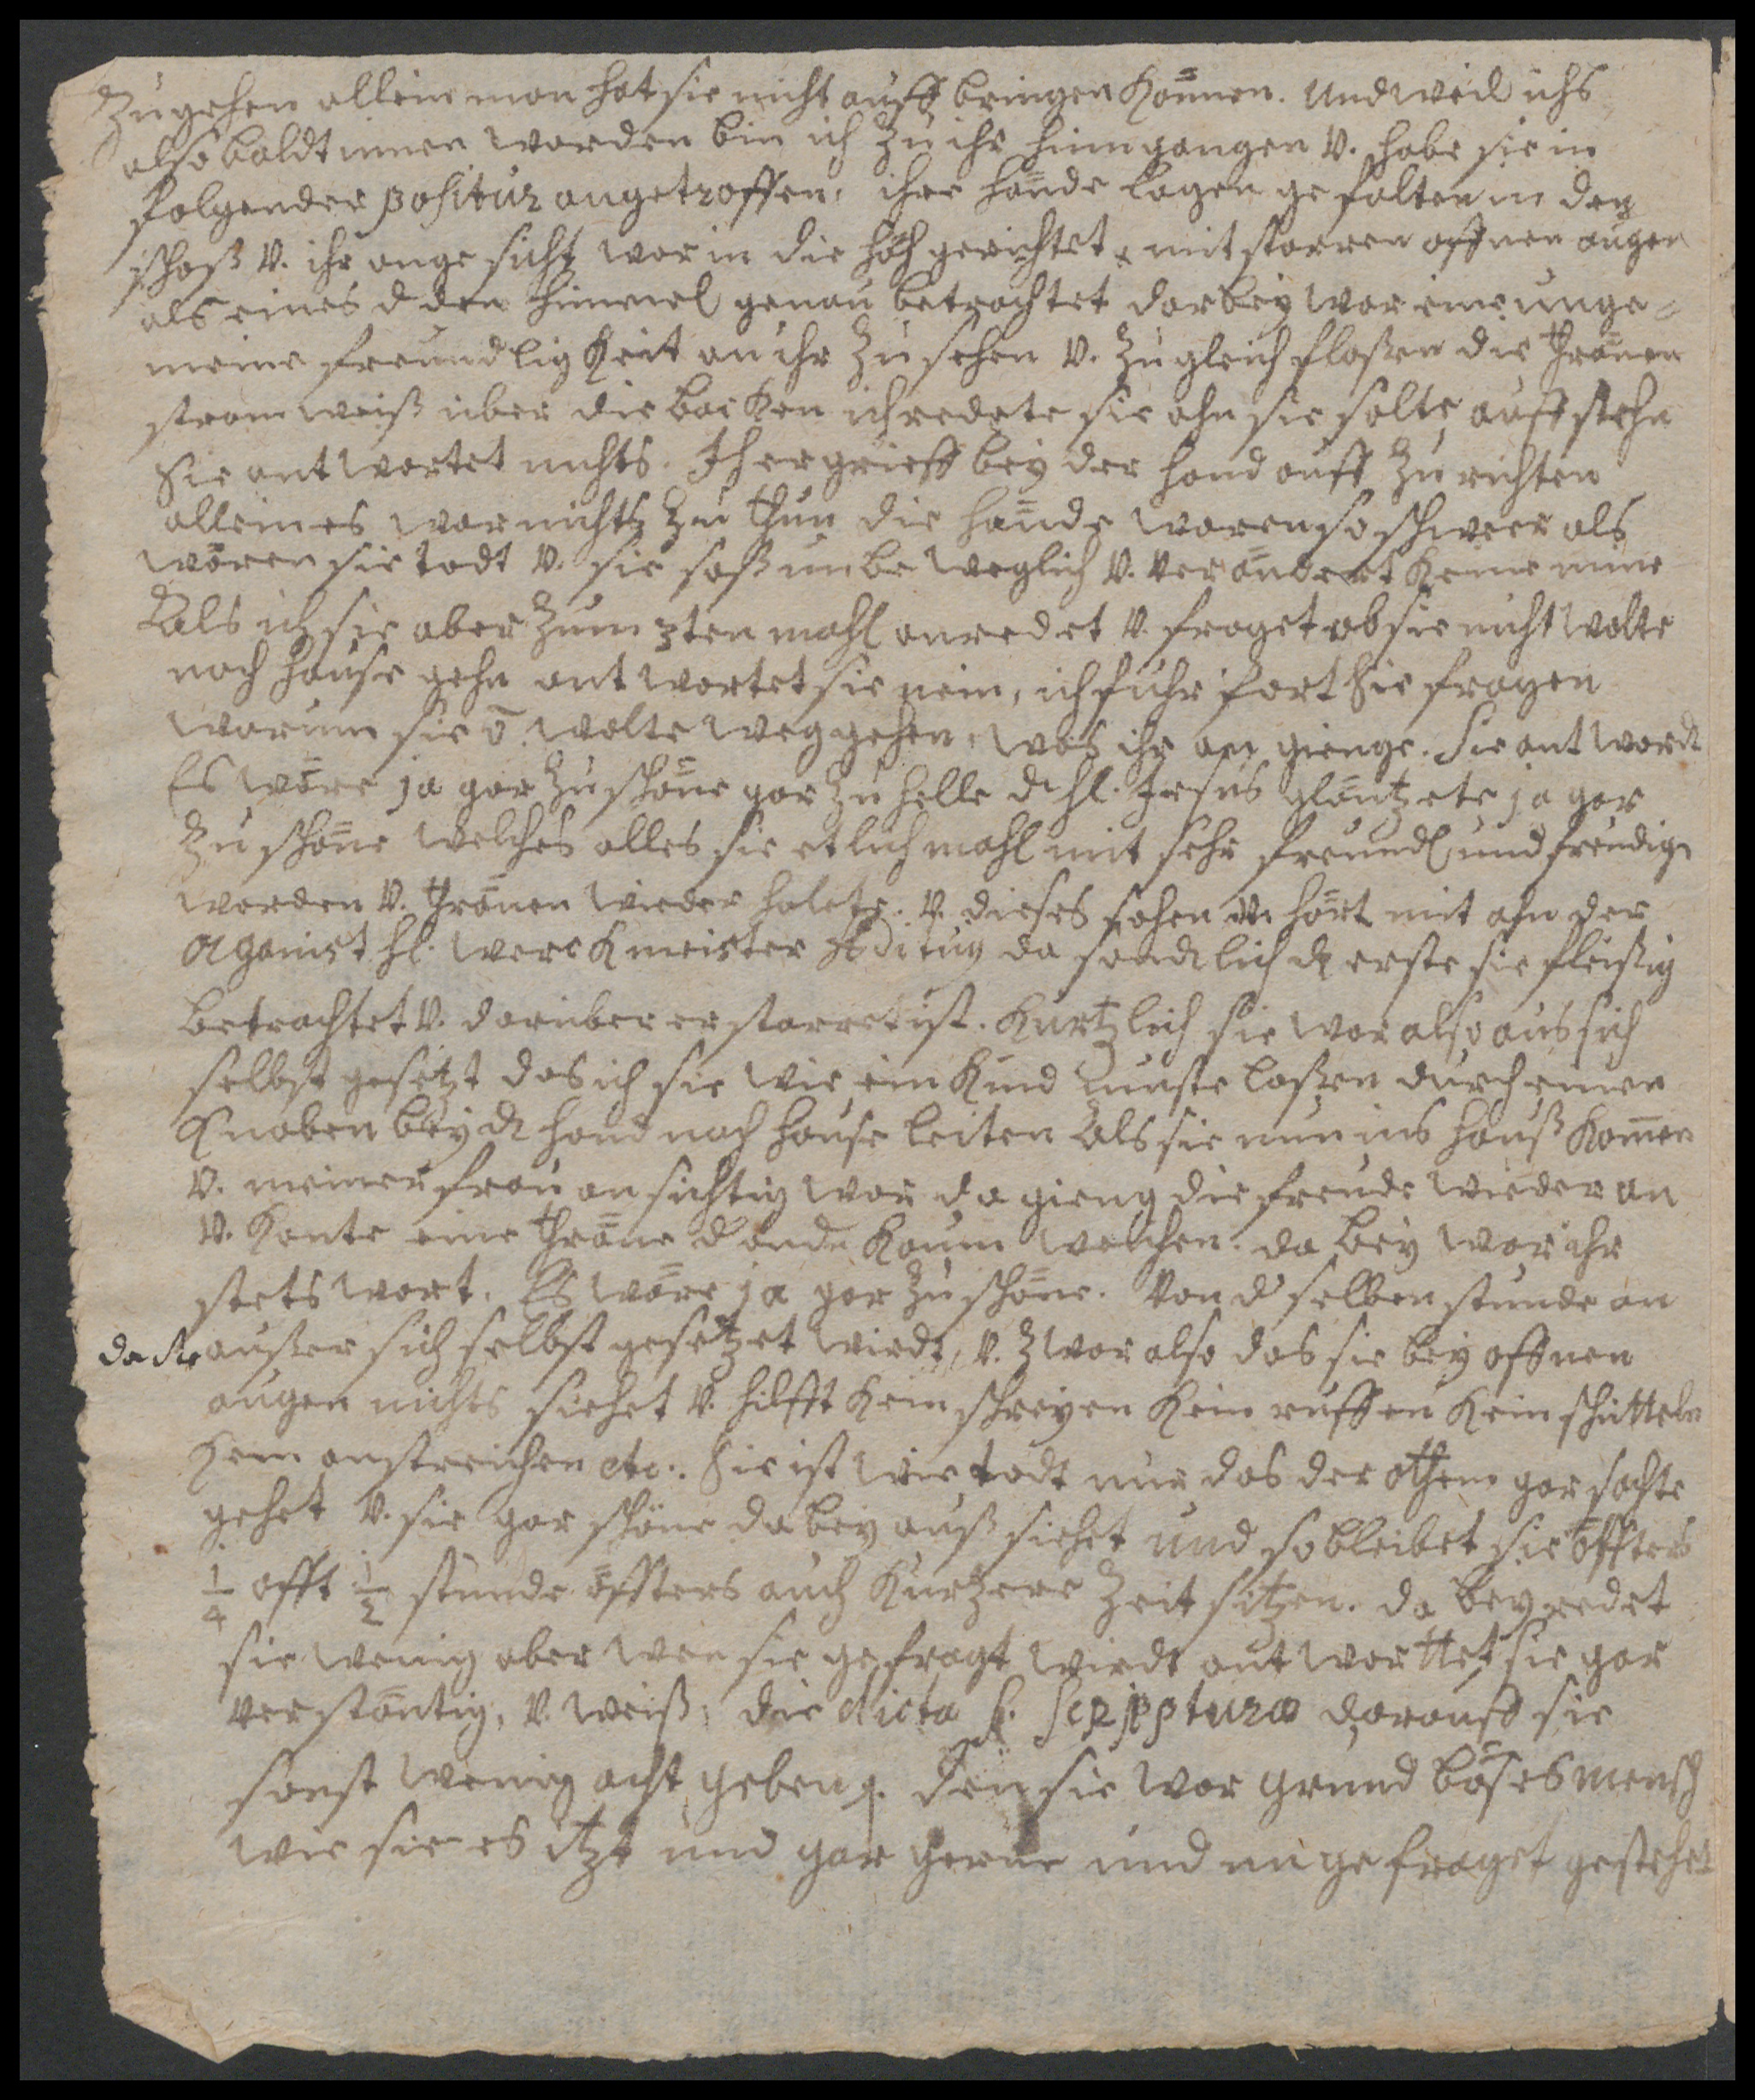 Zugehen allein man hat sie nicht auff bringen können. Und weil ichs
also baldt innen worden bin ich zu ihr hinn gangen v. habe sie in
folgender positur angetroffen, ihre hände lagen gefalten in den
schoß v. ihr ange sicht war in die höh gerichtet mit starren offnen augen
als eines d den himmel genau betrachtet darbey war eine unge-
meine freundligkeit an ihr zu sehen v. zugleich floßen die thränen
strom weiß über die backen ich redete sie ahn sie solte auff stehn
Sie antwortet nichts. Ich ergrieff bey der hand auff zu richten
allein es war nichts zu thun die hände waren so schweer als
wären sie todt v. sie saß unbeweglich v. verändert keine mine
Als ich sie aber zum 3ten mahl anredet v. fraget ob sie nicht wolte
nach hause gehn antwortet sie nein, ich fuhr fort Sie fragen
warum sie ō wolte weg gehen, was ihr an gienge. Sie antword
Es wäre ja gar zu schöne gar zu helle d hl. Jesus gläntzete ja gar
zu schöne welches alles sie etlich mahl mit sehr freundl und freudign
worden v. thränen wieder holete. v. dieses sahen v. hört mit ahn der
Organist hl. werckmeister Ædituus da sondlich d erste sie fleißig
betrachtet v. darüber erstarret ist. Kurtzlich sie war also aus sich
selbst gesetzt das ich sie wie ein Kind muste laßen durch einen
Knaben bey d hand nach hause leiten Als sie nun ins hauß kommen
v. meiner frau ansichtig war da gieng die freude wieder an
v. konte eine thräne d andn kaum weichen. da bey war ihr
stets wort. Es wäre ja gar zu schöne. Von d selben stunde an
da sie außer sich selbst gesetzet wirdt, v. zwar also das sie bey offnen
augen nichts siehet v. hilfft kein schreyen kein ruffen kein schütteln
kein anstreichen etc. Sie ist wie todt nur das der othem gar sachte
gehet v. sie gar schöne dabey auß siehet und so bleibet sie öffters
1/4 offt 1/2 stunde öffters auch kurtzere zeit sitzen. da bey redet
sie wenig aber wen sie gefragt wirdt antworttet sie gar
verständig, v. weiß, die dicta S. Scripturæ darauff sie
sonst wenig acht geben. den sie war grund böses mensch
wie sie es itzt und gar gerne und ungefraget gestehet